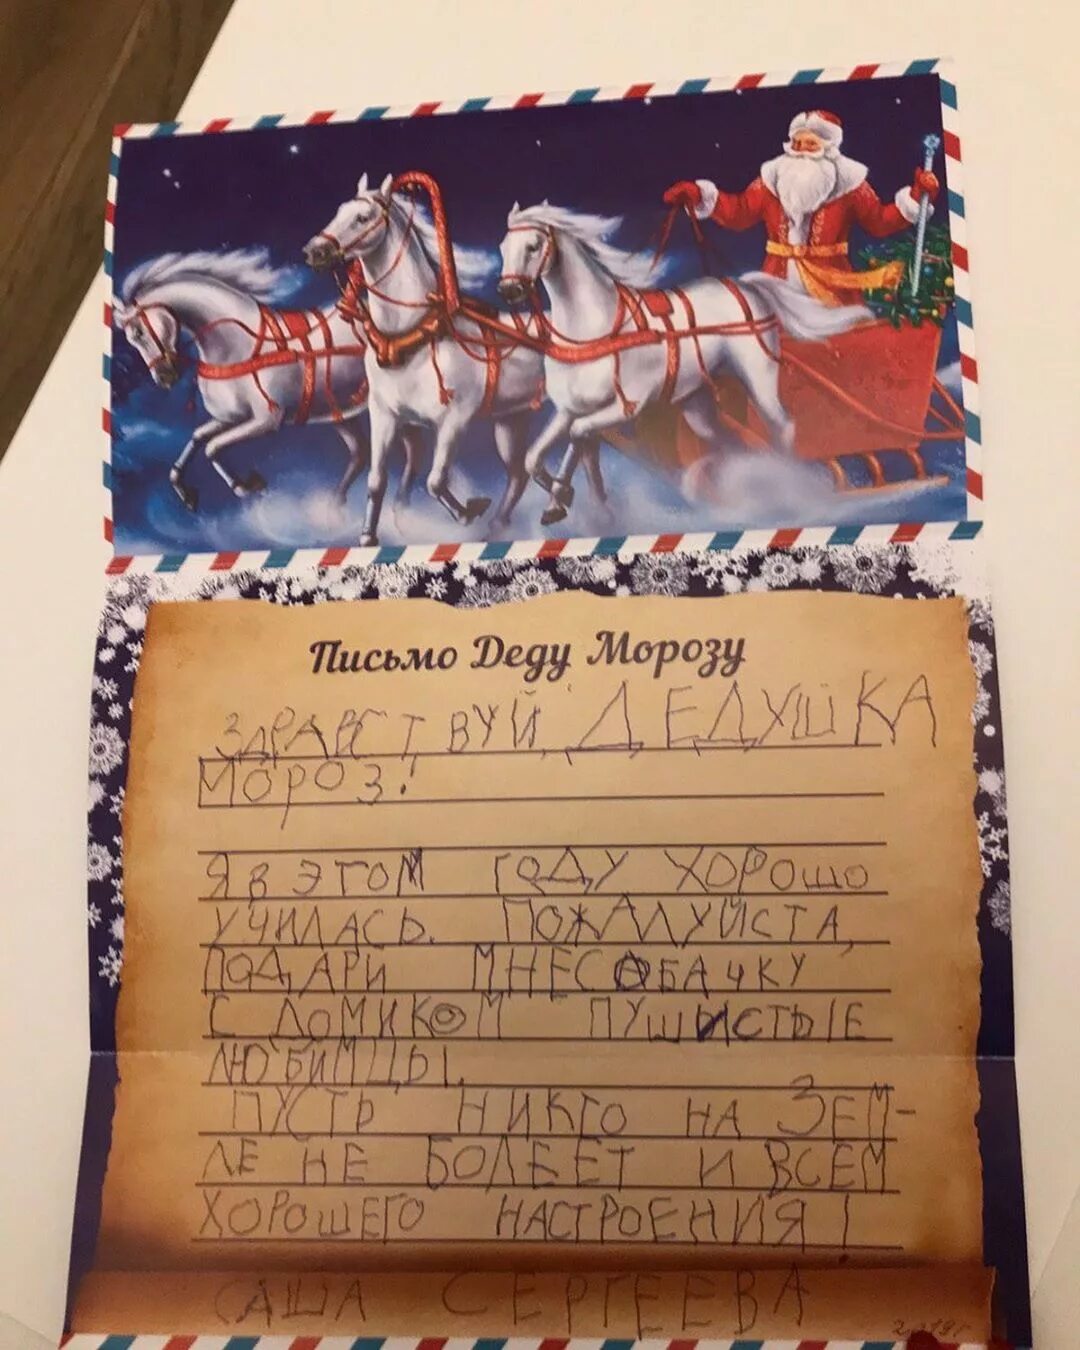 Письмо Деду Морозу
ЗДРАВСТВУЙ, ДЕДУШКА
МОРОЗ!
Я В ЭТОМ ГОДУ ХОРОШО
УЧИЛАСЬ. ПОЖАЛУЙСТА,
ПОДАРИ МНЕ САБАЧКУ
С ДОМИКОМ ПУШЫСТЫЕ
ЛЮБИМЦЫ.
ПУСТЬ НИКТО НА ЗЕМ-
ЛЕ НЕ БОЛЕЕТ И ВСЕМ
ХОРОШЕГО НАСТРОЕНИЯ!
САША СЕРГЕЕВА
2019г